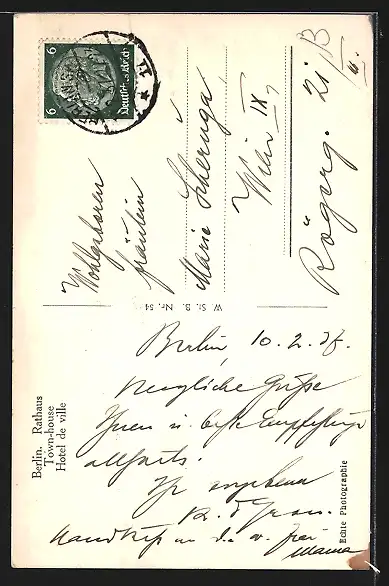 6 Deutsches Reich 6
Wohlgeboren
Fräulein
Marie
Wien IX,
Rögerg. 21
W. St. B. Nr. 54
Berlin. Rathaus
Town-house
Hotel de ville
Echte Photographie
Berlin, 10.2.37.
Herzliche Grüße
Ihnen u. beste Empfehlung
allseits.
Ihr ergebener
Handkuß an die
Mama